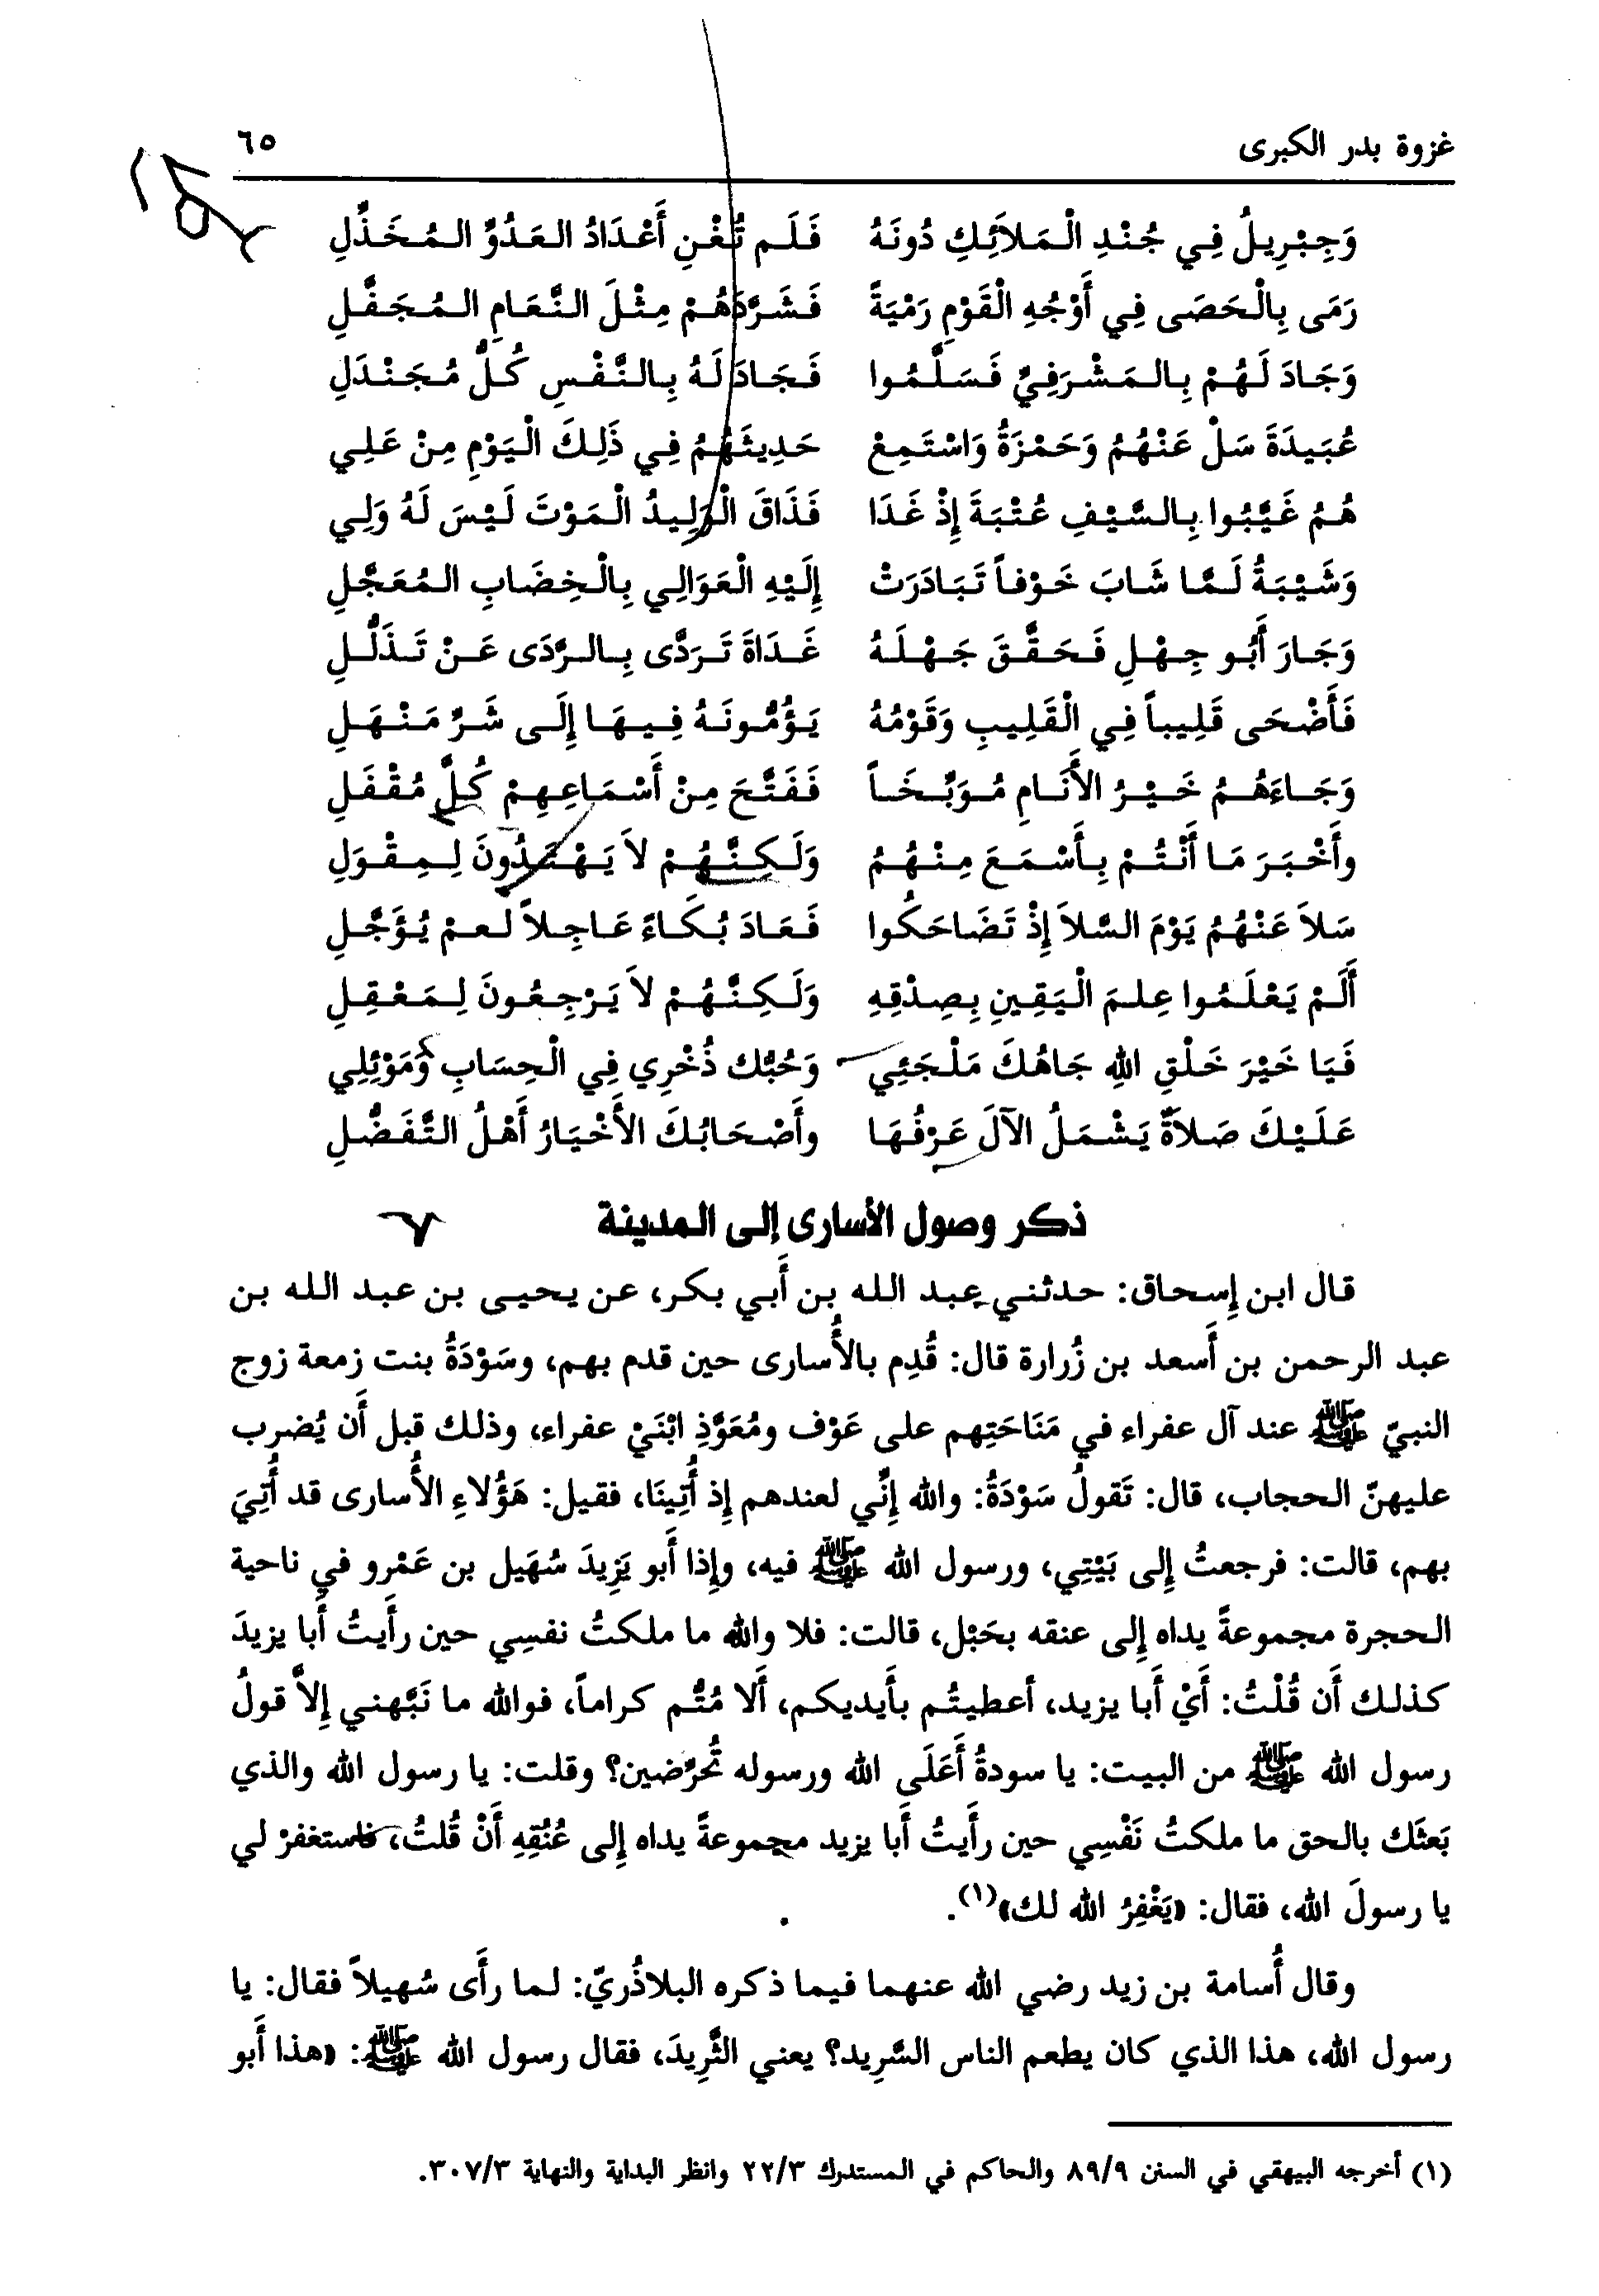 غزوة بدر الكبرى ٦٥
وَجِبْرِيلُ فِي جُنْدِ الْمَلاَئِكِ دُونَهُ فَلَم تُغْنِ أَعْدَادُ العَدُوِّ المُخَذَّلِ
رَمَى بِالْحَصَى فِي أَوْجُهِ الْقَوْمِ رَمْيَةً فَشَرَّدَهُمْ مِثْلَ النَّعَامِ المُجَفَّلِ
وَجَادَ لَهُمْ بِالمَشْرَفِيِّ فَسَلَّمُوا فَجَادَ لَهُ بِالنَّفْسِ كُلُّ مُجَنْدَلِ
عُبَيدَةَ سَلْ عَنْهُمُ وَحَمْزَةُ وَاسْتَمِعْ حَدِيثَهُمُ فِي ذَلِكَ الْيَوْمِ مِنْ عَلِي
هُمُ غَيَّبُوا بِالسَّيْفِ عُتْبَةَ إِذْ غَدَا فَذَاقَ الْوَلِيدُ الْمَوْتَ لَيْسَ لَهُ وَلِي
وَشَيْبَةُ لَمَّا شَابَ خَوْفاً تَبَادَرَتْ إِلَيْهِ الْعَوَالِي بِالْخِضَابِ المُعَجَّلِ
وَجَارَ أَبُو جِهْلِ فَحَقَّقَ جَهْلَهُ غَدَاةَ تَرَدَّى بِالرَّدَى عَنْ تَذَلُّلِ
فَأَضْحَى قَلِيباً فِي الْقَلِيبِ وَقَوْمُهُ يَؤُمُّونَهُ فِيهَا إِلَى شَرِّ مَنْهَلِ
وَجَاءَهُمُ خَيْرُ الأَنَامِ مُوَبِّخَاً فَفَتَّحَ مِنْ أَسْمَاعِهِمْ كُلَّ مُقْفَلِ
وأَخْبَرَ مَا أَنْتُمْ بِأَسْمَعَ مِنْهُمُ وَلَكِنَّهُمْ لاَ يَهْتَدُونَ لِمِقْوَلِ
سَلاَ عَنْهُمُ يَوْمَ السَّلاَ إِذْ تَضَاحَكُوا فَعَادَ بُكَاءً عَاجِلاً لعمْ يُؤَجَّلِ
أَلَمْ يَعْلَمُوا عِلمَ الْيَقِينِ بِصِدْقِهِ وَلَكِنَّهُمْ لاَ يَرْجِعُونَ لِمَعْقِلِ
فَيَا خَيْرَ خَلْقِ اللهِ جَاهُكَ مَلْجَئِي وَحُبُّك ذُخْرِي فِي الْحِسَابِ وَمَوْئِلِي
عَلَيْكَ صَلاَةٌ يَشْمَلُ الآلَ عَرْفُهَا وأَصْحَابُكَ الأَخْيَارُ أَهْلُ التَّفَضُّلِ
ذكر وصول الأسارى إلى المدينة
قال ابن إسحاق: حدثني عبد الله بن أَبي بكر، عن يحيى بن عبد الله بن
عبد الرحمن بن أَسعد بن زُرارة قال: قُدِم بالأُسارى حين قدم بهم، وسَوْدَةُ بنت زمعة زوج
النبيّ ﷺ عند آل عفراء في مَنَاحَتِهم على عَوْف ومُعَوَّذِ ابْنَيْ عفراء، وذلك قبل أَن يُضرب
عليهنّ الحجاب، قال: تَقولُ سَوْدَةُ: والله إنِّي لعندهم إذ أُتِينَا، فقيل: هَؤُلاءِ الأُسارى قد أُتِيَ
بهم، قالت: فرجعتُ إلى بَيْتِي، ورسول الله ﷺ فيه، وإذا أَبو يَزِيدَ سُهَيل بن عَمْرو في ناحية
الحجرة مجموعةً يداه إلى عنقه بحَبْل، قالت: فلا والله ما ملكتُ نفسِي حين رأَيتُ أَبا يزيدَ
كذلك أَن قُلْتُ: أَيْ أَبا يزيد، أعطيتُم بأَيديكم، أَلا مُتُّم كراماً، فوالله ما نَبَّهني إِلاَّ قولُ
رسول الله ﷺ من البيت: يا سودةُ أَعَلَى الله ورسوله تُحرِّضين؟ وقلت: يا رسول الله والذي
بَعثَك بالحق ما ملكتُ نَفْسِي حين رأَيتُ أَبا يزيد مجموعةً يداه إلى عُنُقِهِ أَنْ قُلتُ، فاستغفرْ لي
يا رسولَ الله، فقال: «يَغْفِرُ الله لك»(١).
وقال أُسامة بن زيد رضي الله عنهما فيما ذكره البلاذُريّ: لما رأَى سُهيلاً فقال: يا
رسول الله، هذا الذي كان يطعم الناس السَّرِيد؟ يعني الثَّرِيدَ، فقال رسول الله ﷺ: «هذا أَبو
(١) أخرجه البيهقي في السنن ٨٩/٩ والحاكم في المستدرك ٢٢/٣ وانظر البداية والنهاية ٣٠٧/٣.